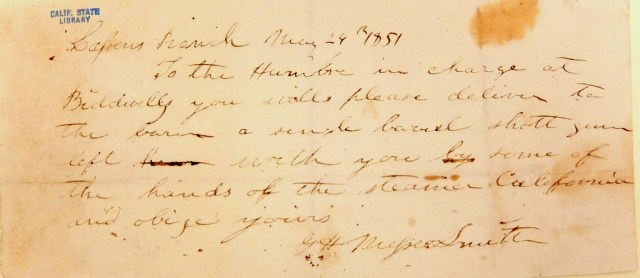 CALIF. STATE
LIBRARY
Lassens Ranch May 24th 1851
To the Humbre in charge at
Bidwells you wills please deliver to
the barer a single barel shott gun
left with you by some of
the hands of the steamer California
and obige yours
Smith